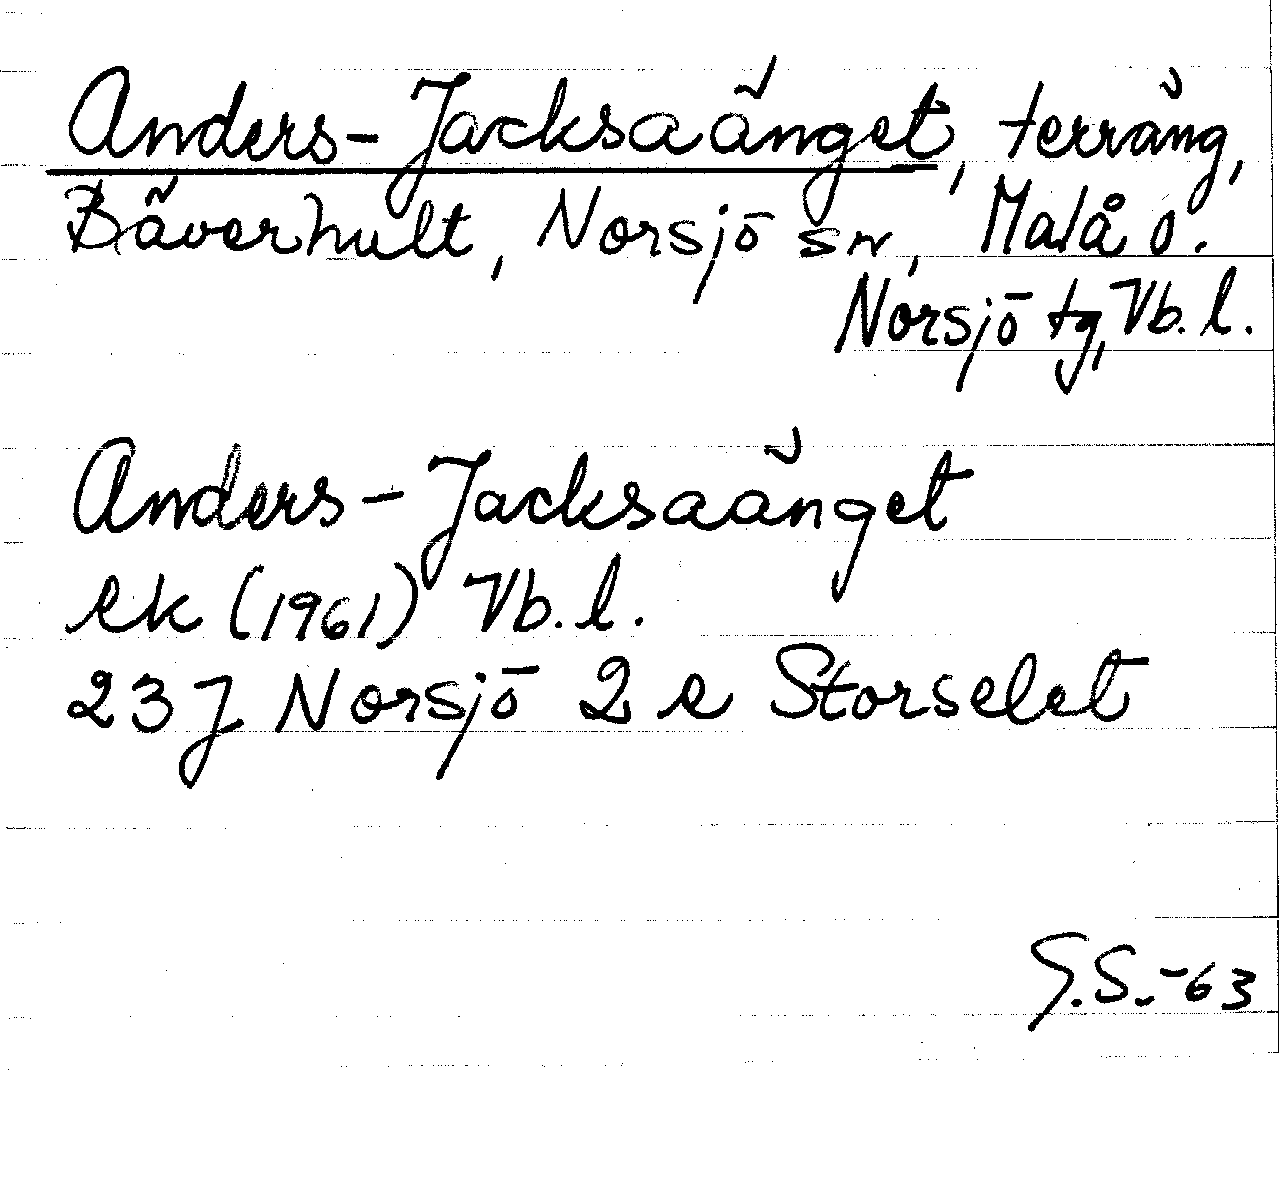 Anders-Jacksaänget, terräng,
Bäverhult, Norsjö sn, Malå o.
Norsjö tg, Vb. l.
Anders-Jacksaänget
ek (1961) Vb. l.
23J Norsjö 2 e Storselet
G.S.-63